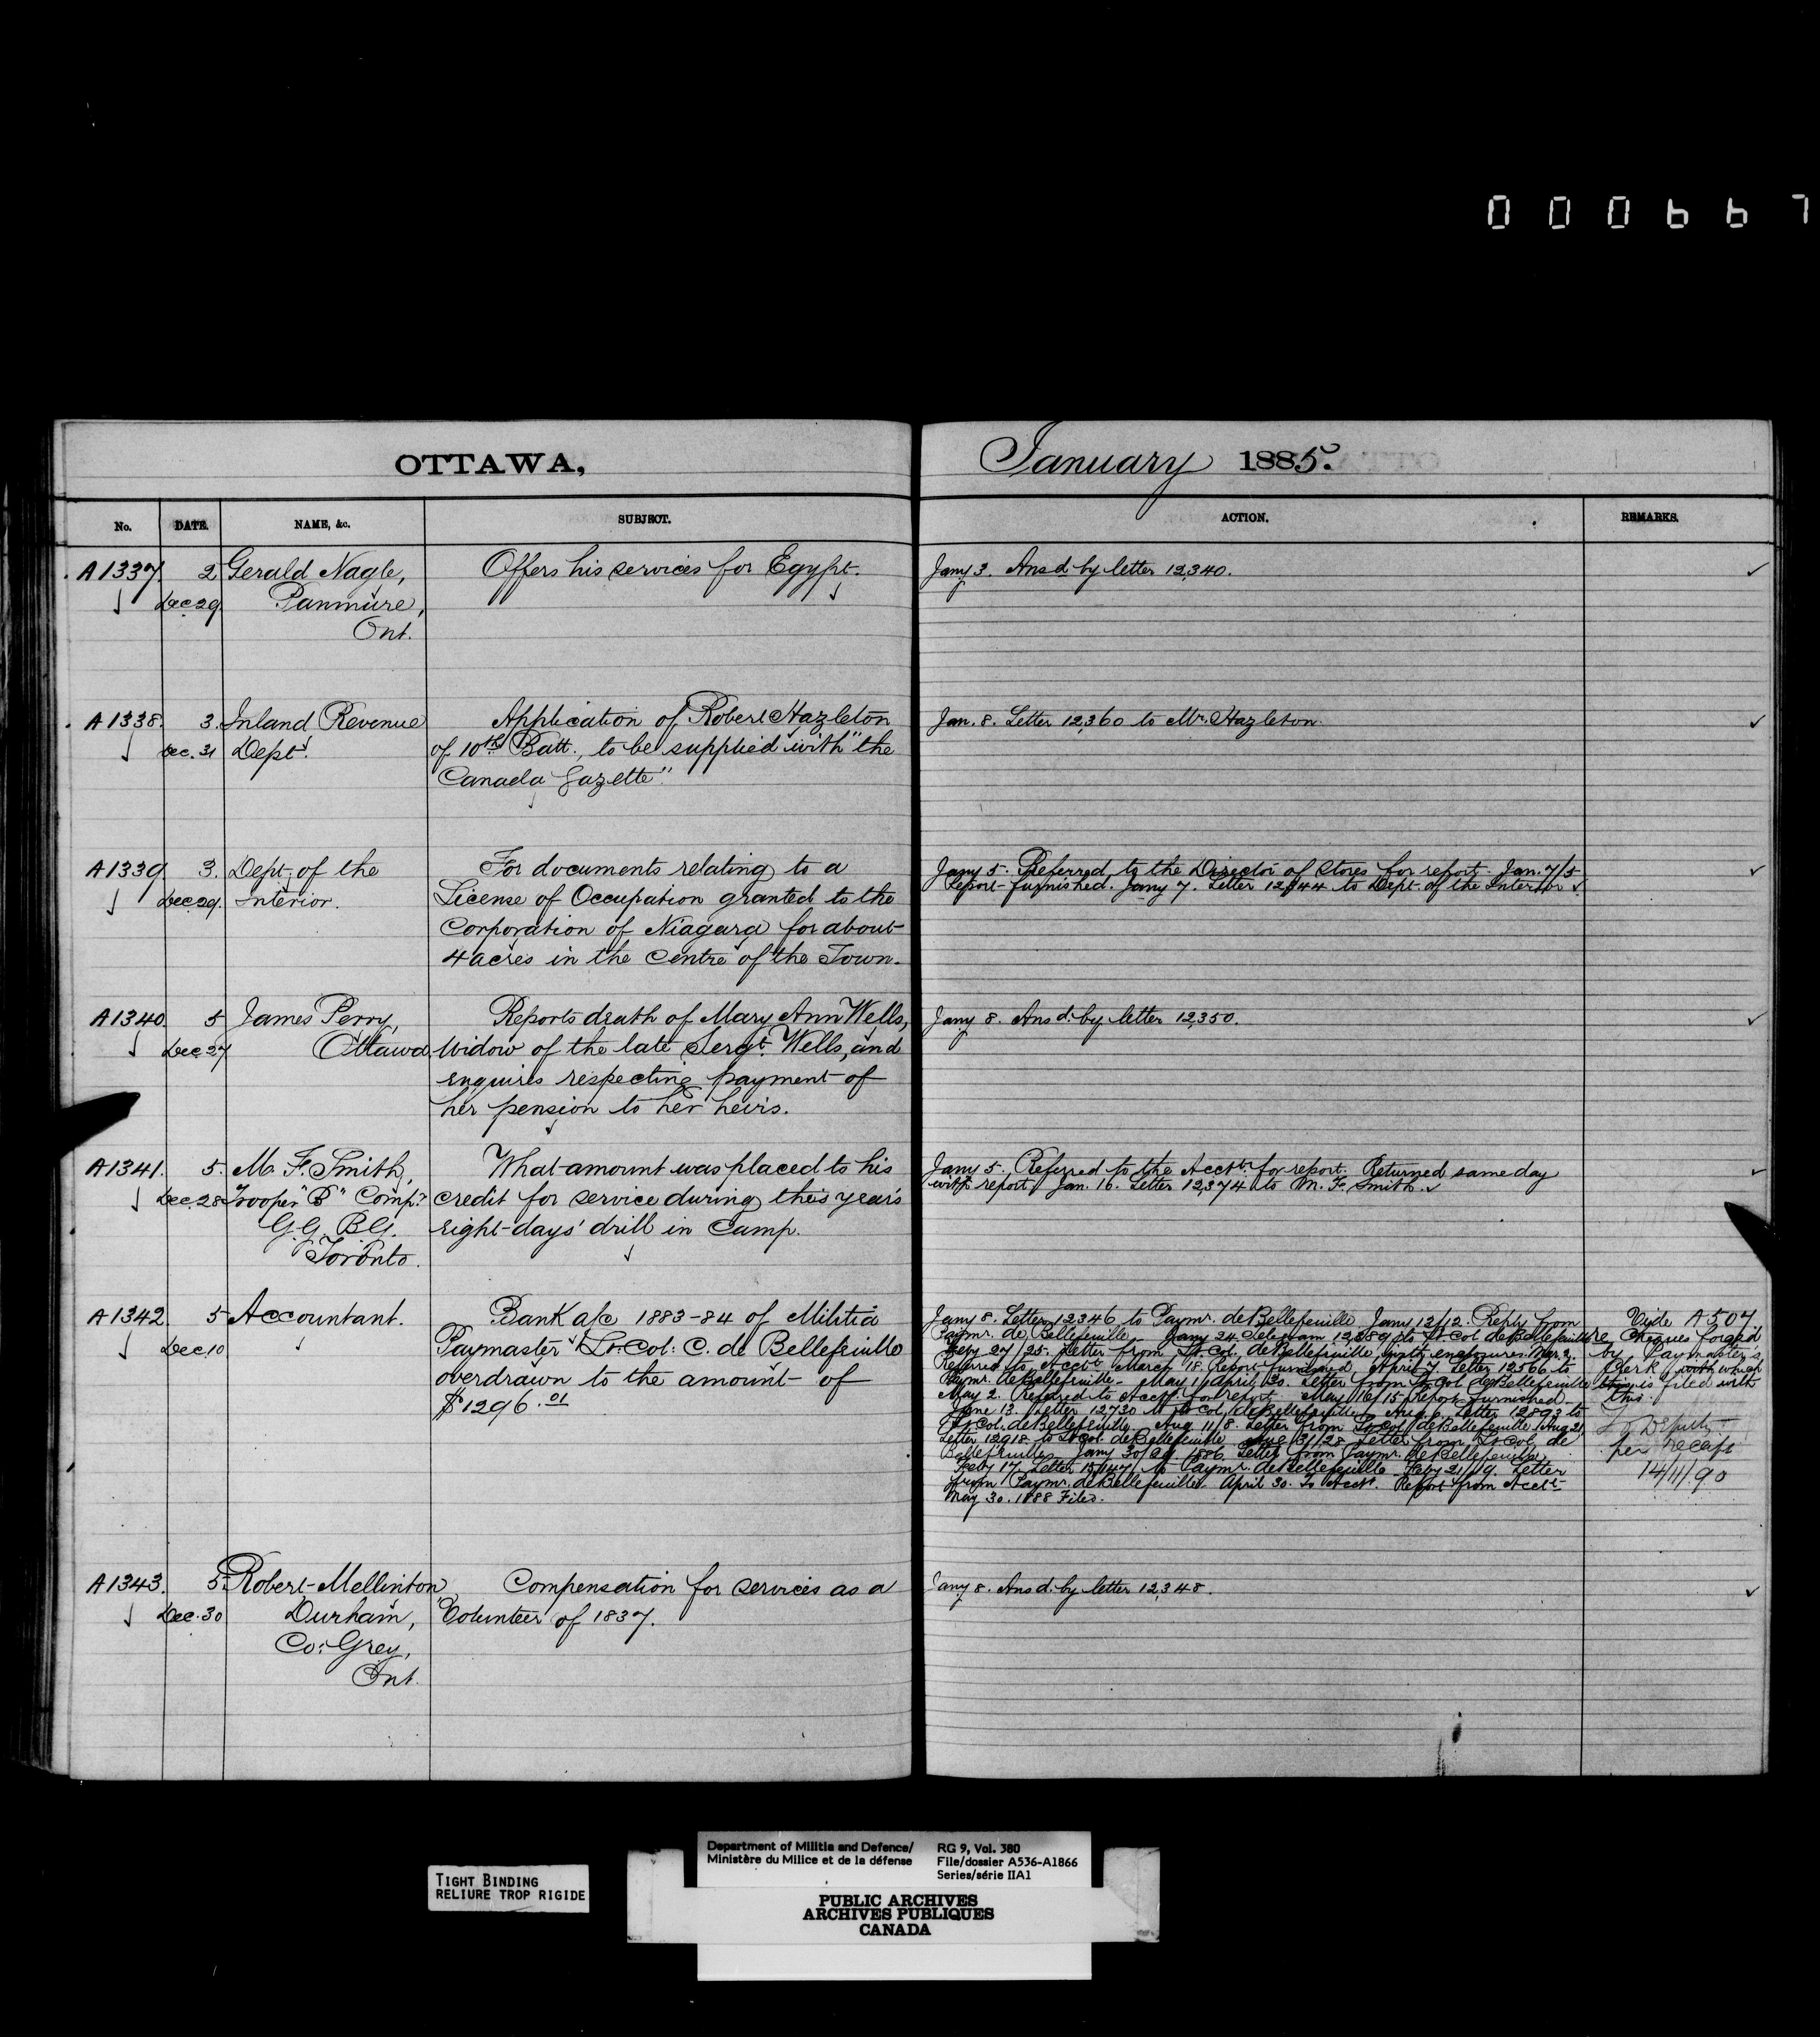 000667
OTTAWA,
January 1885.
No. DATE. NAME, &c. SUBJECT. ACTION. REMARKS.
A1337 2 Gerald Nagle, Offers his services for Egypt. Jany 3. Ansd. by letter 12,340.
Dec 29 Panmure,
Ont.
A1338. 3. Inland Revenue Application of Robert Hazleton Jan. 8. Letter 12,360 to Mr. Hazleton.
Dec. 31 Dept. of 10th Batt., to be supplied with "the
Canada Gazette".
A1339 3. Dept. of the For documents relating to a Jany 5. Referred to the Director of Stores for report. Jan. 7/5
Dec 29. Interior. License of Occupation granted to the Report furnished. Jany 7. Letter 12,344 to Dept. of the Interior
Corporation of Niagara for about
4 acres in the centre of the Town.
A1340 5 James Perry, Reports death of Mary Ann Wells, Jany 8. Ansd. by letter 12,350.
Dec 27 Ottawa Widow of the late Sergt. Wells, and
enquires respecting payment of
her pension to her heirs.
A1341. 5. M. F. Smith, What amount was placed to his Jany 5. Referred to the Acctt. for report. Returned same day
Dec. 28 Trooper "B" Comp. credit for service during this year's with report. Jan. 16. Letter 12,374 to M. F. Smith.
G.G.B.G. eight-days' drill in Camp.
Toronto.
A1342 5 Accountant. Bank a/c 1883-84 of Militia
Dec 10 Paymaster Lt. Col: C. de Bellefeuille
overdrawn to the amount of
$1296.01
Jany 8. Letter 12346 to Paymr. de Bellefeuille. Jany 13/12. Reply from
Paymr. de Bellefeuille. Jany 24 Telegram to Lt Col de Bellefeuille
Feby 27/25. Letter from Lt. Col. de Bellefeuille, with enclosures. Mar 2.
Referred to Acctt. March 18. Report furnished. April 7. Letter 12566 to
Paymr. de Bellefeuille. May 1/April 30. Letter from Lt Col de Bellefeuille
May 2. Referred to Acctt. for report. May 16/15 Report furnished.
June 13. Letter 12730 to Lt Col. de Bellefeuille. Aug. 6. Letter 12893 to
Lt Col. de Bellefeuille. Aug 11/8. Letter from Lt Col. de Bellefeuille. Aug 21
Letter 12918 to Lt Col. de Bellefeuille. Aug 31/28 Letter from Lt Col. de
Bellefeuille. Jany 30/29 1886 Letter from Paymr. de Bellefeuille.
Feby 17. Letter to Paymr. de Bellefeuille. Feby 21/19. Letter
from Paymr. de Bellefeuille. April 30. To Acctt. Report from Acctt.
May 30. 1888 Filed.
Vide A507
re cheques forged
by Paymaster's
Clerk with which
this is filed with
this.
To Deputy
per recapt
14/11/90
A1343. 5 Robert Mellinton Compensation for services as a Jany 8. Ansd. by letter 12,348.
Dec. 30 Durham, Volunteer of 1837.
Co: Grey,
Ont.
TIGHT BINDING
RELIURE TROP RIGIDE
Department of Militia and Defence/ RG 9, Vol. 380
Ministère du Milice et de la défense File/dossier A536-A1866
Series/série IIA1
PUBLIC ARCHIVES
ARCHIVES PUBLIQUES
CANADA